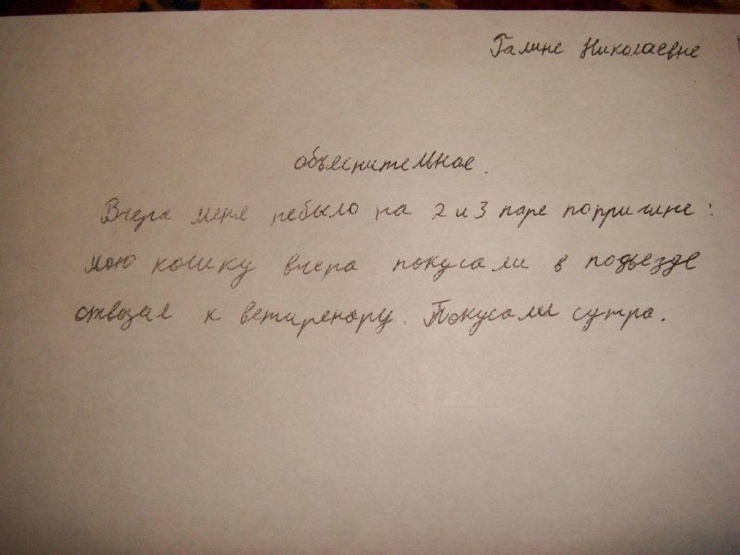 Галине Николаевне
обьяснительное.
Вчера меня небыло на 2 и 3 паре попричине:
мою кошку вчера покусали в подьезде
отвозил к ветиренару. Покусали сутра.